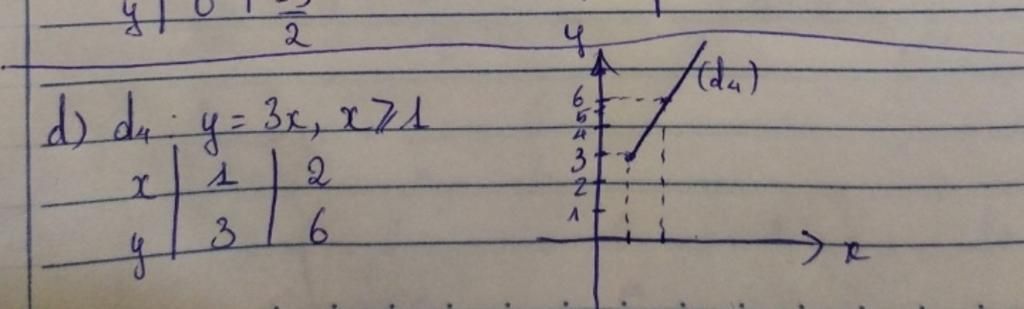 y | 0 |
2
d) d₄ : y = 3x, x ⩾ 1
x | 1 | 2
y | 3 | 6
y
(d₄)
6
5
4
3
2
1
x